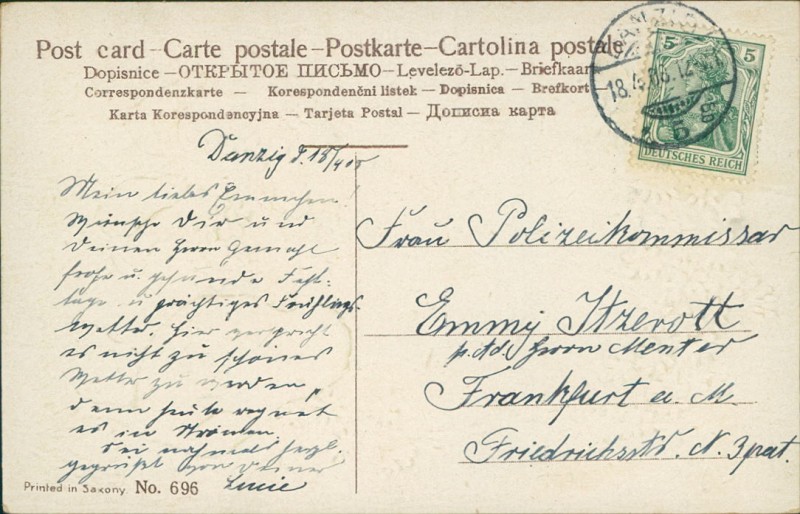 Post card – Carte postale – Postkarte – Cartolina postale
Dopisnice – ОТКРЫТОЕ ПИСЬМО – Levelező-Lap. – Briefkaart
Correspondenzkarte – Korespondenční listek – Dopisnica – Brefkort
Karta Korespondencyjna – Tarjeta Postal – Дописна карта
5 5
DEUTSCHES REICH
DANZIG
18.4.06.12-1N
Danzig d. 18/4 06
Mein liebes Emmchen!
Wünsche Dir und
Deinem Herrn Gemahl
frohe u. gesunde Fest-
tage u prächtiges Frühlings-
wetter. Hier verspricht
es nicht zu schönes
Wetter zu werden,
denn heute regnet
es in Strömen
Sei nochmal herzl.
gegrüßt von Deiner
Lucie
Frau Polizeikommissar
Emmy Itzerott
p. Ad. Herrn Menter
Frankfurt a. M.
Friedrichsstr. N. 3 part.
Printed in Saxony No. 696